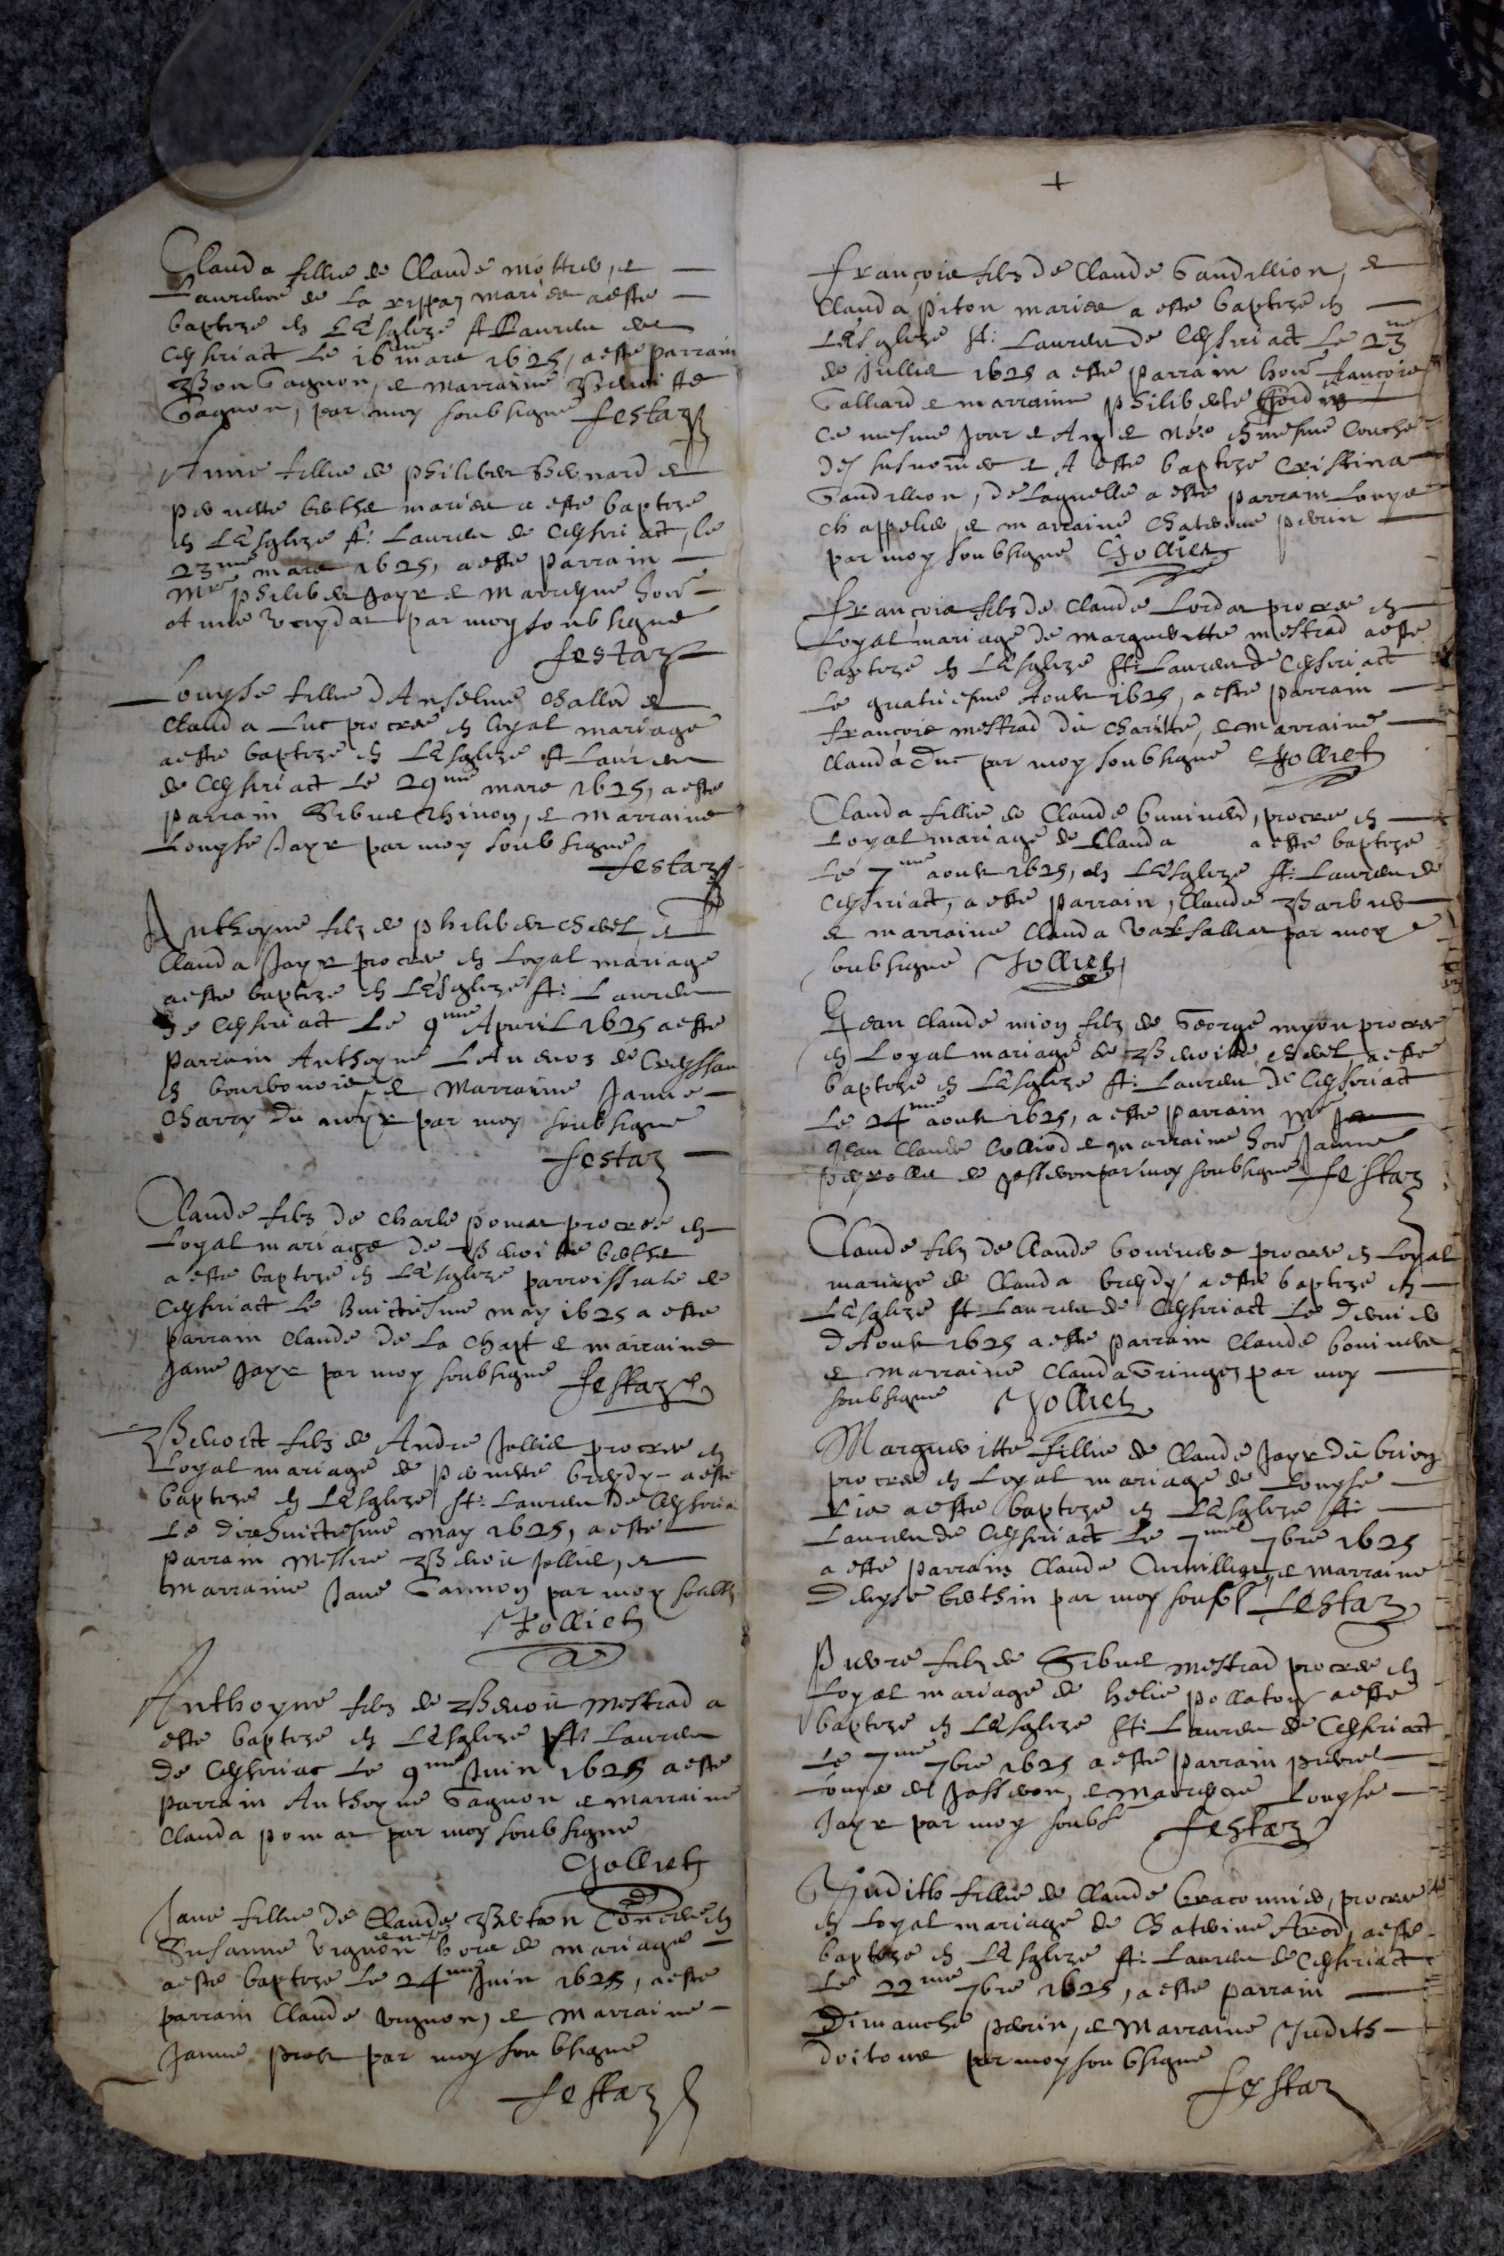 Clauda fillie de Claude mottier, et
Laurence de la rippaz mariez a esté
baptize en L'Esglize St Lauren de
Ceyseriact le 16me mars 1625, a esté parrain
Gagnon, et marraine Benoitte
Gagnon, par moy soubsigné Festaz
Anne fillie de philibert Benard et
pernette berthet mariez a esté baptize
en L'Esglize St: Lauren de Ceyseriact, le
23me mars 1625, a esté parrain
Mre philibert Jayr et marreyne hon
Anne par moy soubsigné
Festaz
Louyse fillie d'Anselme Challed et
Clauda Luc procree en loyal mariage
a esté baptize en L'Esglize St Lauren
de Ceyseriact le 29me mars 1625, a esté
parrain Sibuet et marraine
Louyse Jayr par moy soubsigné
Festaz
Anthoyne filz de philibert Chevel, et
Clauda Jayr procree en Loyal mariage
a esté baptize en L'Esglize St: Lauren
de Ceyseriact Le 9me Apvril 1625 a esté
parrain Anthoyne de
en bourbonois et Marraine Janne
Charvy du noyr par moy soubsigné
Festaz
Claude filz de Charle pomat procree en
Loyal mariage de Benoitte berthet
a esté baptize en L'Esglize parroissiale de
Ceyseriact le huictiesme may 1625 a esté
parrain Claude De La Chapt et marraine
Jane Jayr par moy soubsigné Festaz
Benoict filz de Andre Jolliet procree en
Loyal mariage de pernette breydy a esté
baptize en L'Esglize St: Lauren De Ceyseria
Le dixhuictiesme may 1625, a esté
parrain Messire Benoit Jolliet, et
marraine Jane Gannon par moy soubz
Jolliet
Anthoyne filz de Benoit Mestrad a
esté baptize en L'Esglize St: Lauren
de Ceyseriac Le 9me Juin 1625 a esté
parrain Anthoyne Gagnon et Marraine
Clauda pomat par moy soubsigné
Jolliet
Jane fillie de Claude Breton et
Susanne Vignon hors de mariage
a esté baptize Le 24me Juin 1625, a esté
parrain Claude Vignon, et Marraine
Janne prost par moy soubsigné
Festaz
+
François filz de Claude Gandillion, et
Clauda piton mariez a esté baptize en
L'Esglize St: Lauren de Ceyseriact Le 23me
de Juillet 1625 a esté parrain hon françois
Galliard et marraine philiberte
Ce mesme Jour et An et née en mesme couche
des susnommez et A esté baptize Cristina
Gandillion, de Laquelle a esté parrain Louys
Chappelier, et marraine Chaterine perrin
par moy soubsigné Jolliet
François filz de Claude Lordat procree en
Loyal mariage de marguerette mestrad a esté
baptize en L'Esglize St: Lauren de Ceyseriact
Le quatriesme Aoust 1625, a esté parrain
françois mestrad du et marraine
Clauda Duc par moy soubsigné Jolliet
Clauda fillie de Claude procree en
Loyal mariage de Clauda a esté baptize
Le 7me aoust 1625, en L'Esglize St: Lauren de
Ceyseriact, a esté parrain, Claude Barbier
et marraine Clauda par moy
soubsigné Jolliet
Jean Claude mion filz de George myon procree
en Loyal mariage de Benoitte Chevel a esté
baptize en L'Esglize St: Lauren de Ceyseriact
Le 24me aoust 1625, a esté parrain Mre
Jean Claude Colliod et marraine hon Janne
de Jasseron par moy soubsigné Festaz
Claude filz de Claude procree en Loyal
mariage de Clauda breydy a esté baptize en
L'Esglize St Lauren de Ceyseriact Le Dernier
d'Aoust 1625 a esté parrain Claude
et marraine Clauda Gringoz par moy
soubsigné Jolliet
Margueritte fillie de Claude Jayr du brion
procree en Loyal mariage de Louyse
a esté baptize en L'Esglize St:
Lauren de Ceyseriact Le 7me 7bre 1625
a esté parrain Claude et marraine
Denyse berthin par moy soubs Festaz
pierre filz de Sibuet Mestrad procree en
Loyal mariage de helie pollatoy a esté
baptize en L'Esglize St: Lauren de Ceyseriact
Le 7me 7bre 1625 a esté parrain pierre
Louys de Jasseron, et marreyne Louyse
Jayr par moy soubs Festaz
Judith fillie de Claude braconnier, procree
en Loyal mariage de Chaterine Arod, a esté
baptize en L'Esglize St: Lauren de Ceyseriact
Le 22me 7bre 1625, a esté parrain
Dimanche perrin, et Marraine Judith
par moy soubsigné
Festaz